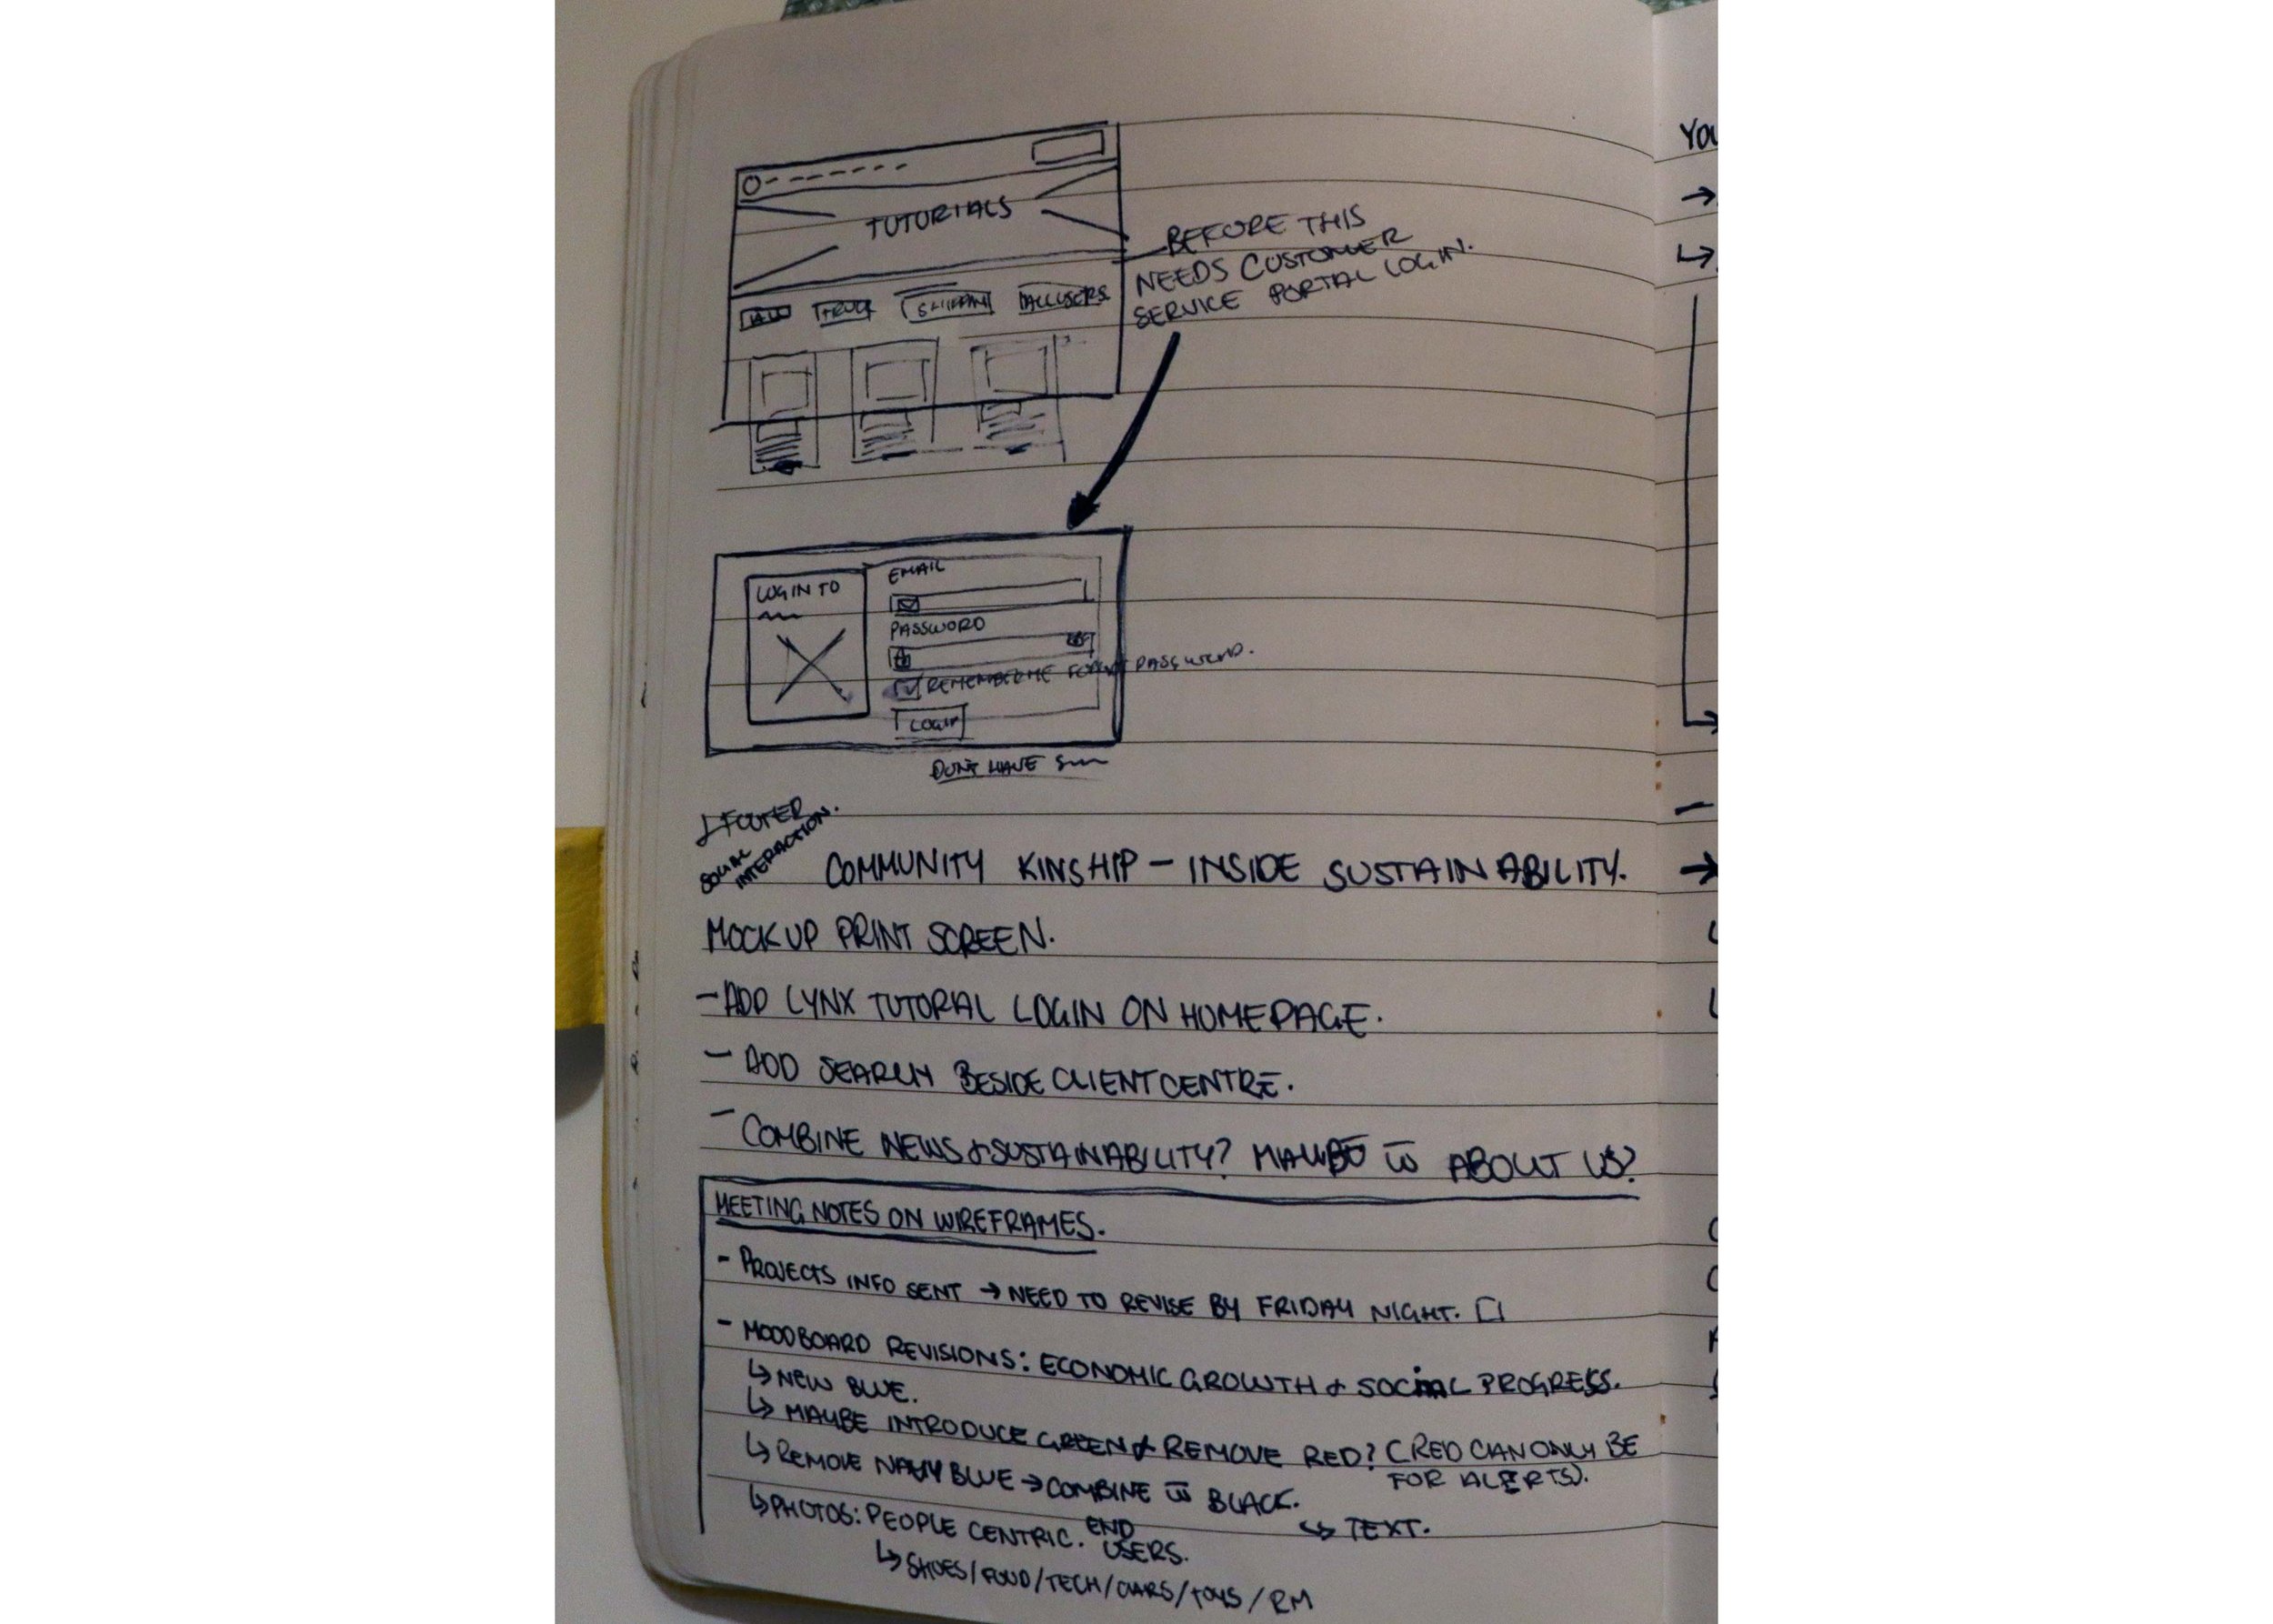 TUTORIALS
BEFORE THIS
NEEDS CUSTOMER
SERVICE PORTAL LOGIN.
ALL TRUCK ALL USERS
LOGIN TO
EMAIL
PASSWORD
REMEMBER ME FORGOT PASSWORD.
LOGIN
DON'T HAVE
FOOTER
SOCIAL
INTERACTION.
COMMUNITY KINSHIP - INSIDE SUSTAINABILITY.
MOCKUP PRINT SCREEN.
- ADD LYNX TUTORAL LOGIN ON HOMEPAGE.
- ADD SEARCH BESIDE CLIENT CENTRE.
- COMBINE NEWS & SUSTAINABILITY? MAYBE W̄ ABOUT US?
MEETING NOTES ON WIREFRAMES.
- PROJECTS INFO SENT → NEED TO REVISE BY FRIDAY NIGHT. □
- MOODBOARD REVISIONS: ECONOMIC GROWTH & SOCIAL PROGRESS.
↳ NEW BLUE.
↳ MAYBE INTRODUCE GREEN & REMOVE RED? (RED CAN ONLY BE
FOR ALERTS).
↳ REMOVE NAVY BLUE → COMBINE W̄ BLACK.
↳ TEXT.
↳ PHOTOS: PEOPLE CENTRIC. END
USERS.
↳ SHOES/FOOD/TECH/CARS/TOYS/RM
YOU